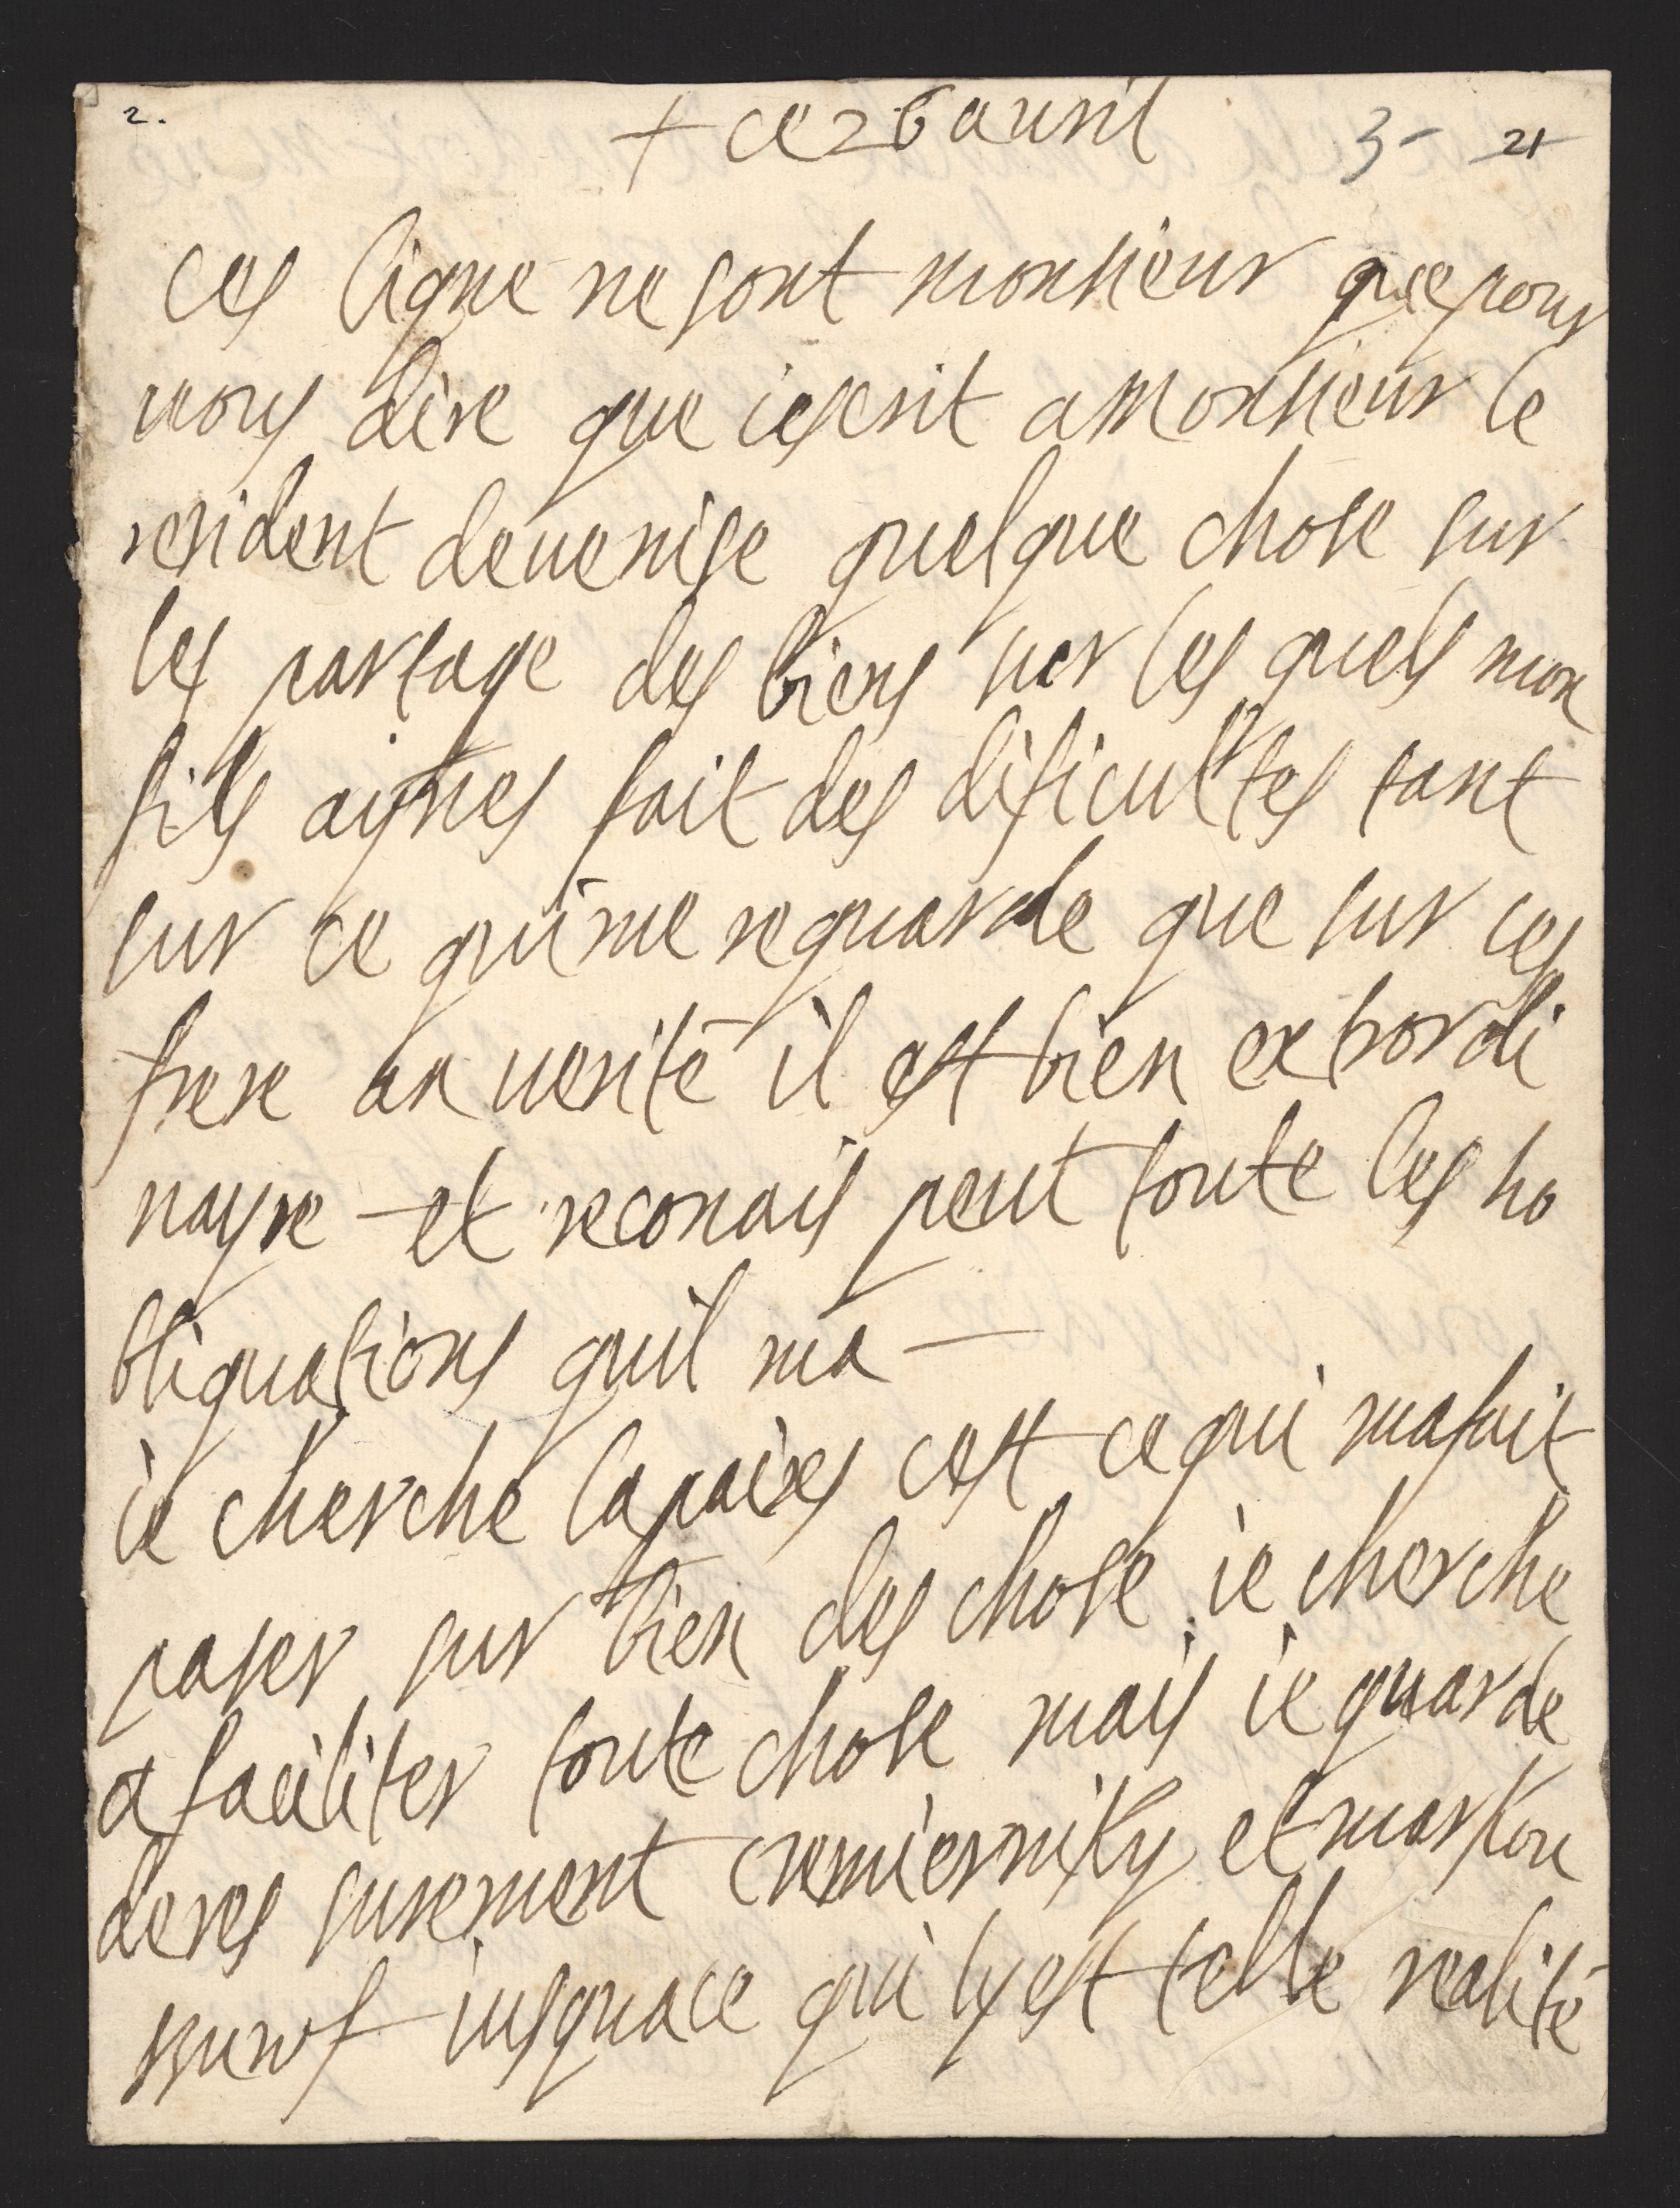 2.
+ ce 26 auril
3- 21
ces ligne ne sont monsieur que pour
uous dire que iescrit a Monsieur le
resident deuenise quelque chose sur
les partage des biens sur les quels mon
fils aisnes fait des dificultes tant
sur ce qui me reguarde que sur ces
frere an uerité il est bien extrordi
nayre et reconais peut toute les ho
bliguations quil ma —
ie cherche la paixs cest ce qui ma fait
paser sur bien des chose ie cherche
a faciliter toute chose mais ie guarde
deres surement cremiernisky et
iusquace qui ly est telle realité